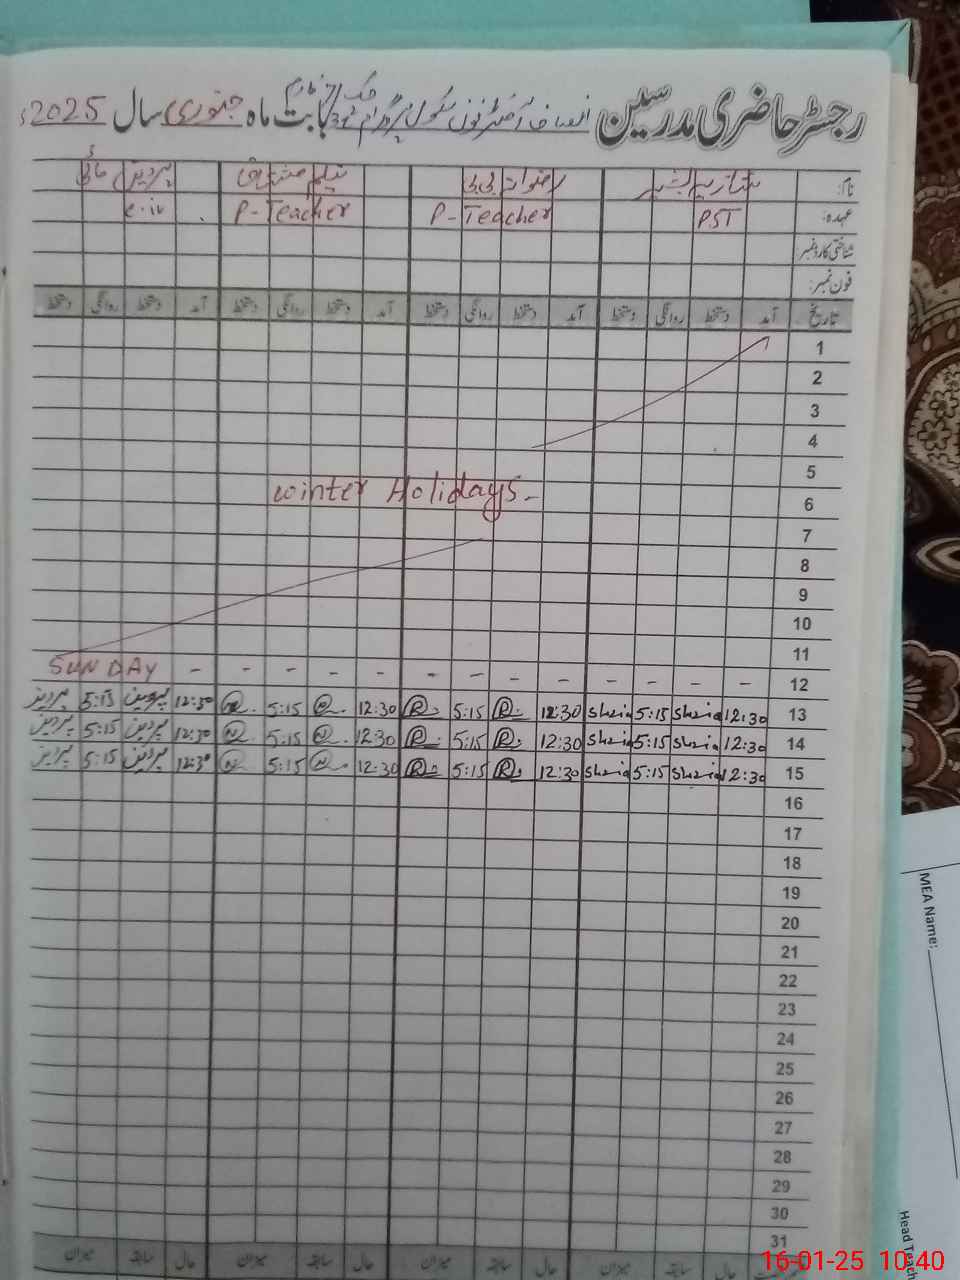 رجسٹر حاضری مدرسین انصاف آفٹرنون سکول پروگرام چک بابت ماہ جنوری سال 2025ء
نام: شازیہ بشیر رضوانہ بی بی نیلم پروین مائی
عہدہ: PST P-Teacher P-Teacher
شناختی کارڈ نمبر:
فون نمبر:
تاریخ آمد دستخط روانگی دستخط آمد دستخط روانگی دستخط آمد دستخط روانگی دستخط آمد دستخط روانگی دستخط
1
2
3
4
5
Winter Holidays- 6
7
8
9
10
11
SUNDAY - - - - - - - - - - - - - 12
پروین 5:15 پروین 12:30 5:15 12:30 R 5:15 R 12:30 Shazia 5:15 Shazia 12:30 13
پروین 5:15 پروین 12:30 5:15 12:30 R 5:15 R 12:30 Shazia 5:15 Shazia 12:30 14
پروین 5:15 پروین 12:30 5:15 12:30 R 5:15 R 12:30 Shazia 5:15 Shazia 12:30 15
16
17
18
19
20
21
22
23
24
25
26
27
28
29
30
31
حال سابقہ میزان حال سابقہ میزان حال سابقہ میزان حال سابقہ میزان
MEA Name:
Head Teach
16-01-25 10:40